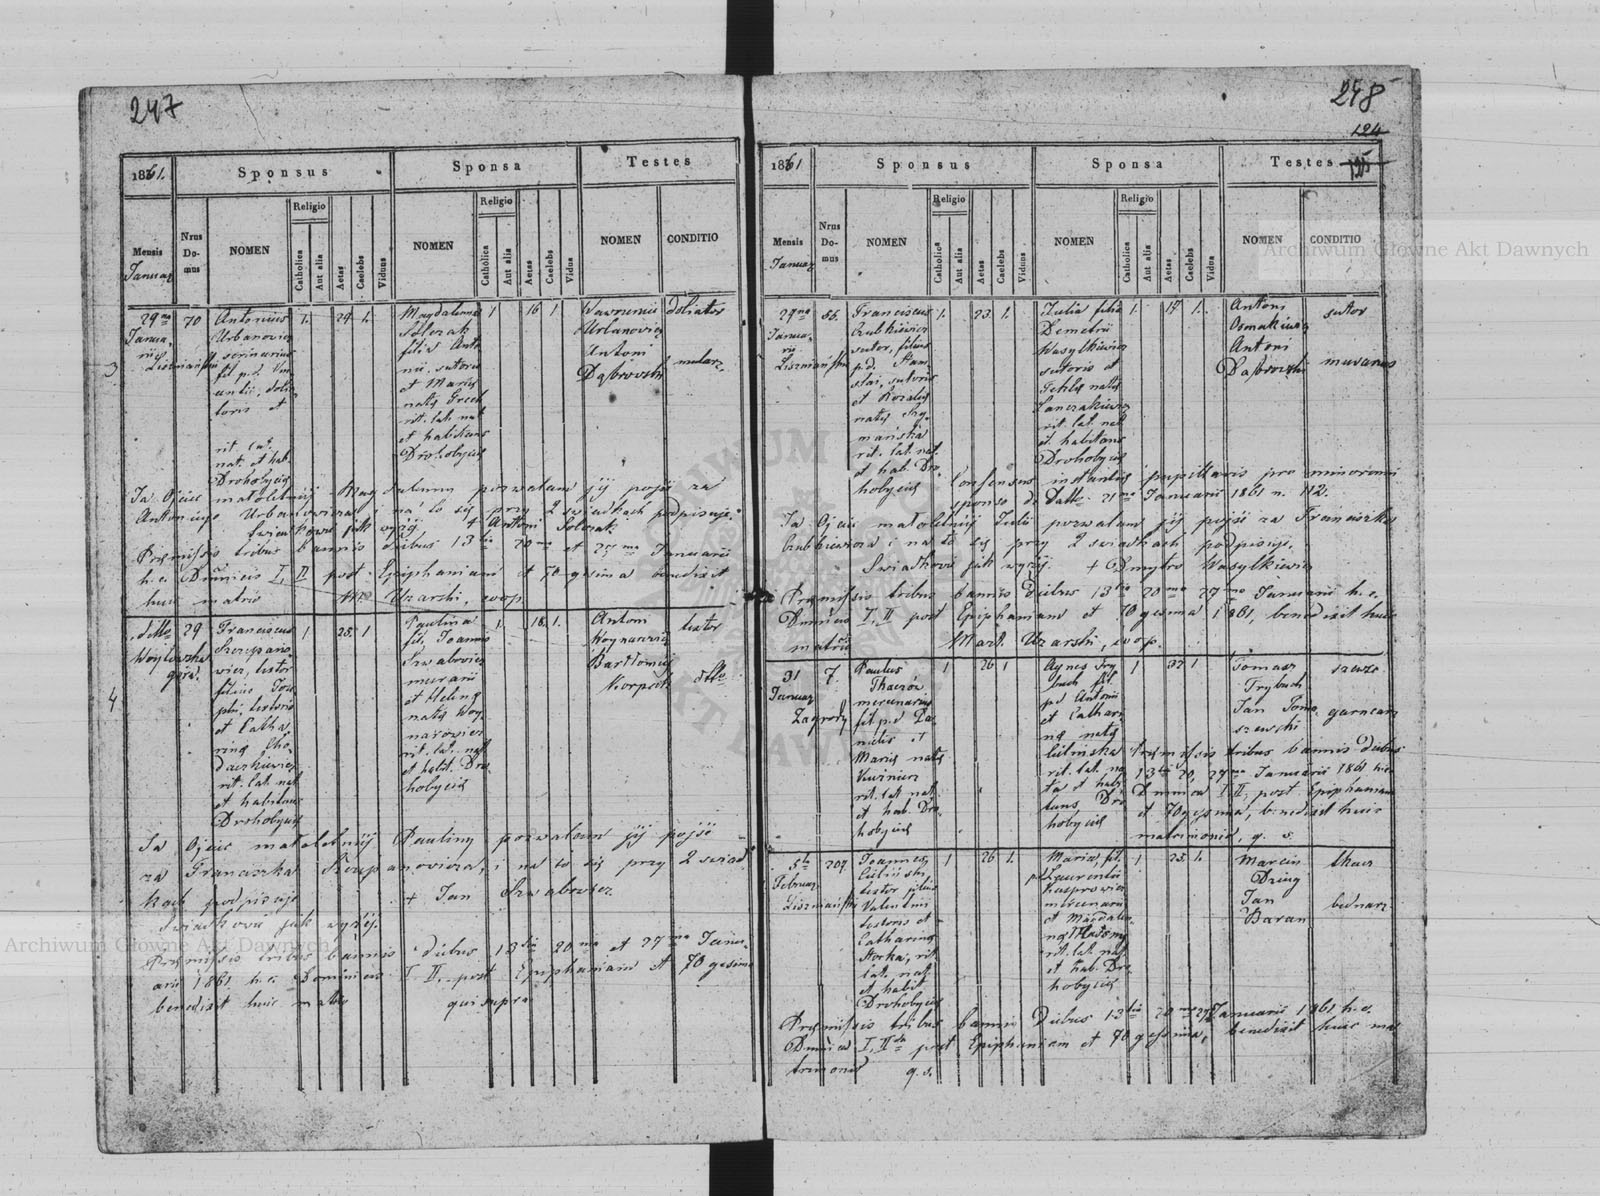 247
1861.
Sponsus
Sponsa
Testes
Mensis
Januar
Nrus
Do-
mus
NOMEN
Religio
Catholica
Aut alia
Aetas
Caelebs
Viduus
NOMEN
Religio
Catholica
Aut alia
Aetas
Caelebs
Vidua
NOMEN
CONDITIO
3
29na
Janua-
rii
70
Antonius
Urbanowicz
fil p.d.
toris et
rit lat.
nat. et hab.
Drohobycii
1.
24
1.
Magdalena
Solczak
filia Anto
nii sutoris
et Maria
nata
rit. lat. nat
et habitans
Drohobycii
1
16
1
Wawrzeniec
Urbanowicz
Antoni
Dąbrowski
doliator
mularz
Ja Ojciec małoletniej Magdaleny pozwalam jej pojść za
Antoniego Urbanowicza i na to się przy 2 świadkach podpisuję.
Świadkowie jak wyżej + Antoni Solczak
Præmissis tribus bannis diebus 13tia 20ma et 27ma Januarii
h.c. Dominicis I, II post Epiphaniam et 70gesima benedixit
huic matrio M. Uzarski, coop.
4
detto
29
Franciscus
Szczepano-
wicz, textor
filius Jose
phi, textoris
et Catha-
rina Cho-
daczkiewicz
rit. lat. nat
et habitans
Drohobycii
1
25.
1
Paulina
fil. Joannis
Szwabowicz
murarii
et Helena
nata Woy-
narowicz
rit. lat. nat
et habit. Dro-
hobycii
1.
18.
1.
Antoni
Woynarowicz
Bartłomiej
Korpak
textor
dtto
Ja Ojciec małoletniej Pauliny pozwalam jej pojść
za Franciszka Szczepanowicza, i na to się przy 2 świad
kach podpisuję + Jan Szwabowicz
Świadkowie jak wyżej.
Præmissis tribus bannis diebus 13tia 20ma et 27ma Janu-
arii 1861 h.c. Dominicis I. II. post Epiphaniam et 70gesima
benedixit huic matrio qui supra
248
124
125
1861
Sponsus
Sponsa
Testes
Mensis
Januar
Nrus
Do-
mus
NOMEN
Religio
Catholica
Aut alia
Aetas
Caelebs
Viduus
NOMEN
Religio
Catholica
Aut alia
Aetas
Caelebs
Vidua
NOMEN
CONDITIO
29na
Janua-
rii
56.
Franciscus
Czubkiewicz
sutor, filius
p.d. Stani
slai, sutoris
et Rozalia
nata
rit. lat. nat.
et hab. Dro-
hobycii
1.
23.
1.
Julia filia
Demetrii
Wasylkiewicz
sutoris et
Tekla nata
rit. lat. nat
et habitans
Drohobycii
1.
17
1.
Antoni
Osmakiewicz
Antoni
Dąbrowski
sutor
murarius
Consensus instantia pupillaris pro minorenni
sponso d. datto 21ma Januarii 1861 n. 112.
Ja Ojciec małoletniej Julii pozwalam jej pojść za Franciszka
Czubkiewicza i na to się przy 2 świadkach podpisuję.
Świadkowie jak wyżej. + Dmytro Wasylkiewicz
Præmissis tribus bannis diebus 13tia 20ma 27ma Januarii h.c.
Dominicis I, II post Epiphaniam et 70gesima 1861, benedixit huic
matrio Mart. Uzarski, coop.
31
Januar
Zagrody
7.
Paulus
Tkaczów
mercenarius
fil p.d Da-
nielis et
Maria nata
Kuźnierz
rit. lat. nat.
et hab. Dro-
hobycii
1
26
1
Agnes Try
buch fil.
pd Antonii
et Cathari
na nata
Cielinska
rit. lat. na-
ta et habi-
tans Dro-
hobycii
1
32
1
Tomasz
Trybuch
Jan Toma-
szewski
szewc
garncarz
Præmissis tribus bannis diebus
13tia 20, 27ma Januarii 1861 h.c.
Dominica I, II, post Epiphaniam
et 70gesima, benedixit huic
matrimonio, q. s.
5ta
Februar
207
Joannes
textor filius
Valentini
textoris et
Catharina
Storka, rit.
lat. nat.
et habit
Drohobycii
1
26
1.
Maria, fil.
pd Laurentii
Kasprowicz
mercenarii
et Magdale-
na
rit. lat. nat.
et hab. Dro-
hobycii
1
25.
1.
Marcin
Jan
Baran
tkacz
bednarz
Præmissis tribus bannis diebus 13tia 20ma 27ma Januarii 1861 h.c.
Dominica I, IIda post Epiphaniam et 70gesima, benedixit huic ma
trimonio q. s.
Archiwum Główne Akt Dawnych
Archiwum Główne Akt Dawnych